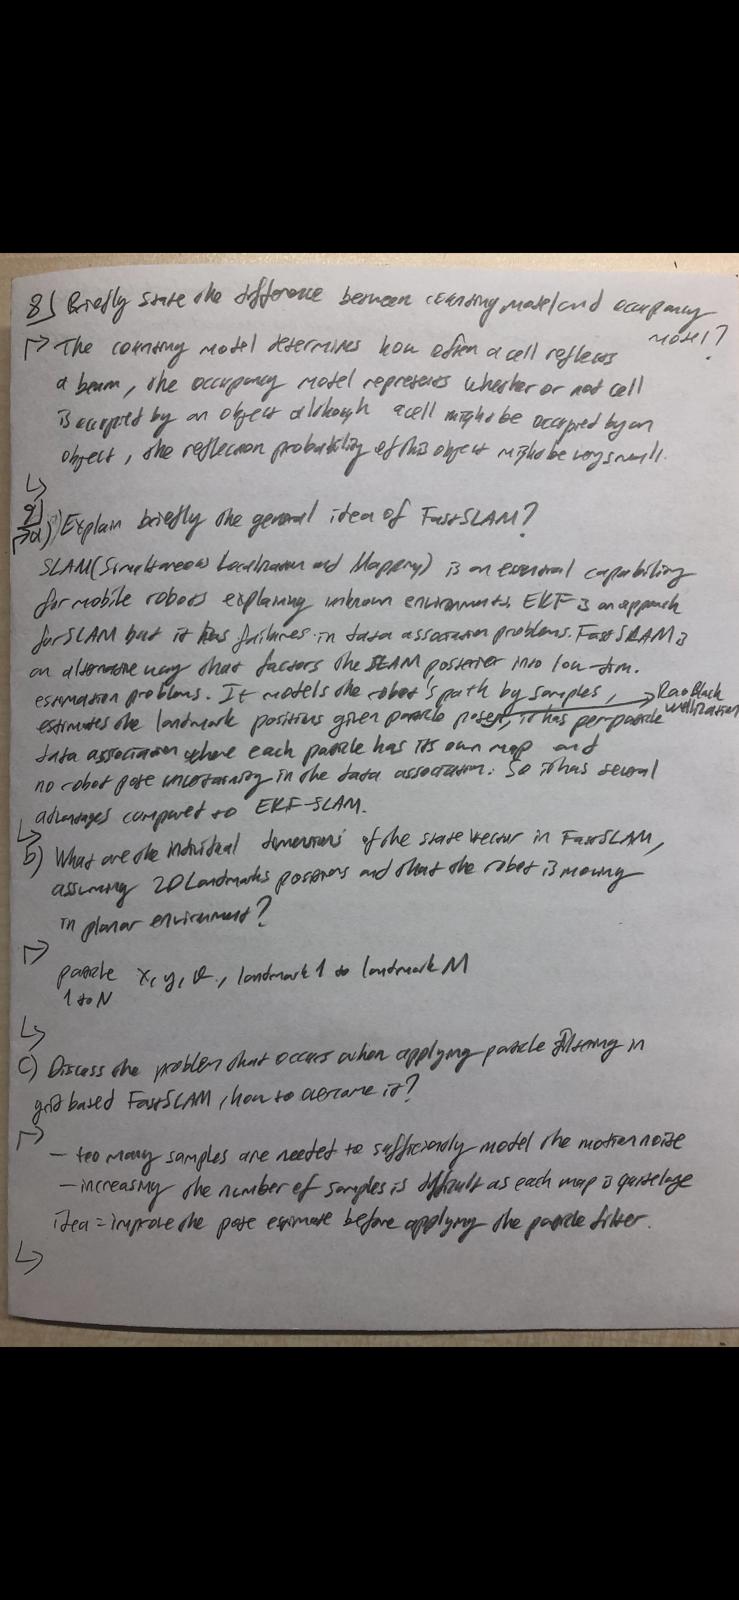 8) Briefly state the difference between counting model and occupancy model?
The counting model determines how often a cell reflects
a beam, the occupancy model represents whether or not cell
is occupied by an object although a cell might be occupied by an
object, the reflection probability of this object might be very small.
9)
a) Explain briefly the general idea of FastSLAM?
SLAM (Simultaneous Localization and Mapping) is an essential capability
for mobile robots explaining unknown environments. EKF is an approach
for SLAM but it has failures in data association problems. FastSLAM is
an alternative way that factors the SLAM posterior into low-dim.
estimation problems. It models the robot's path by samples,
estimates the landmark positions given particle poses, it has per-particle
Rao Black wellization
data association where each particle has its own map and
no robot pose uncertainty in the data association. So it has several
advantages compared to EKF-SLAM.
b) What are the individual dimensions of the state vector in FastSLAM,
assuming 2D Landmarks positions and that the robot is moving
in planar environment?
particle x, y, θ, landmark 1 to landmark M
1 to N
c) Discuss the problem that occurs when applying particle filtering in
grid based FastSLAM, how to overcome it?
- too many samples are needed to sufficiently model the motion noise
- increasing the number of samples is difficult as each map is quite large
idea = improve the pose estimate before applying the particle filter.